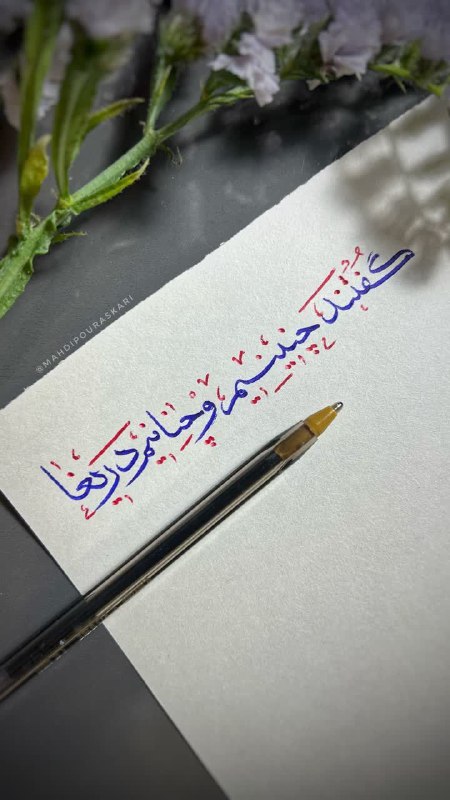 گفتند چنینیم و چنانیم دریغا
@MAHDIPOURASKARI